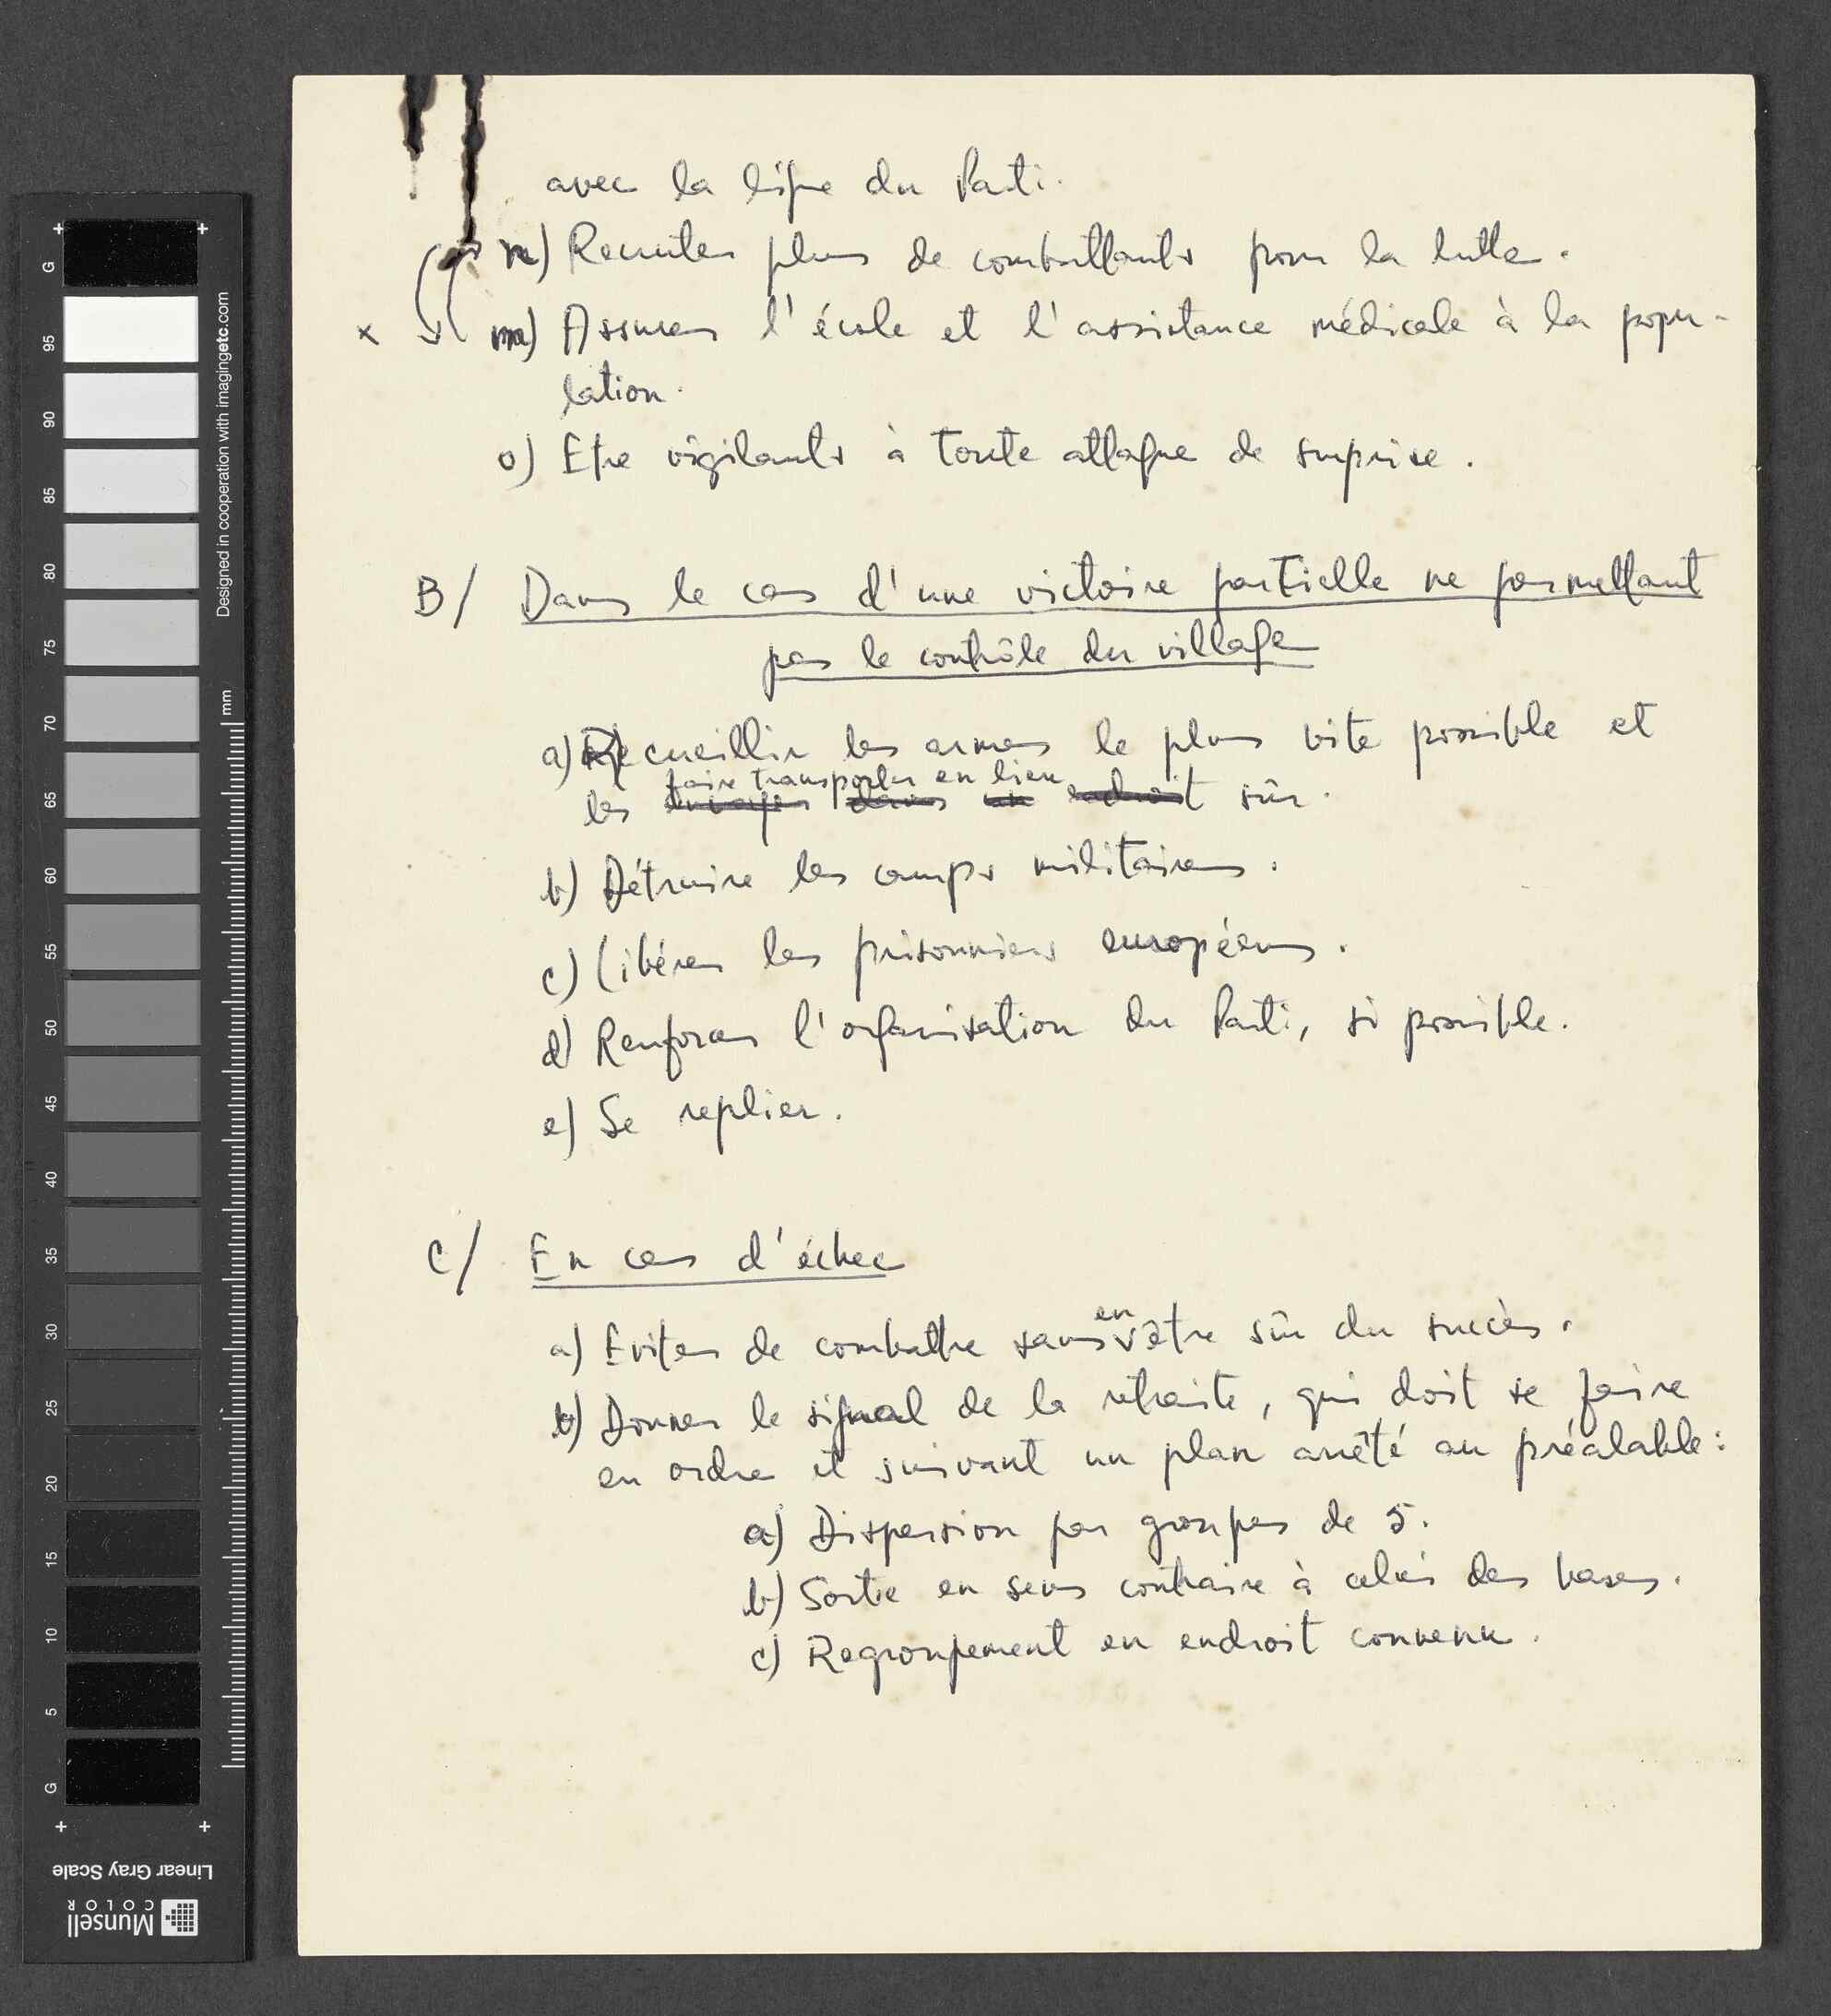 avec la ligne du Parti.
n) Recruter plus de combattants pour la lutte.
x m) Assurer l'école et l'assistance médicale à la popu-
lation.
o) Etre vigilants à toute attaque de surprise.
B/ Dans le cas d'une victoire partielle ne permettant
pas le contrôle du village
a) Recueillir les armes le plus vite possible et
faire transporter en lieu
les envoyer dans un endroit sûr.
b) Détruire les camps militaires.
c) Libérer les prisonniers européens.
d) Renforcer l'organisation du Parti, si possible.
e) Se replier.
C/ En cas d'échec
en
a) Eviter de combattre sans être sûr du succès.
b) Donner le signal de la retraite, qui doit se faire
en ordre et suivant un plan arrêté au préalable:
a) Dispersion par groupes de 5.
b) Sortie en sens contraire à celui des bases.
c) Regroupement en endroit convenu.
G
95
90
85
80
75
70
65
60
55
50
45
40
35
30
25
20
15
10
5
G
Designed in cooperation with imagingetc.com
mm
Linear Gray Scale
Munsell
COLOR